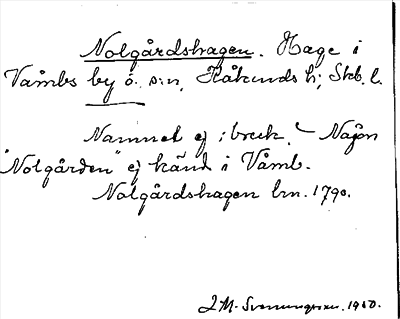 Nolgårdshagen. Hage i
Våmbs by o. s:n, Kåkinds h; Skb. l.
Namnet ej i bruk. – Någon
"Nolgården" ej känd i Våmb.
Nolgårdshagen lrn. 1790.
J M. Svenungsson. 1910.